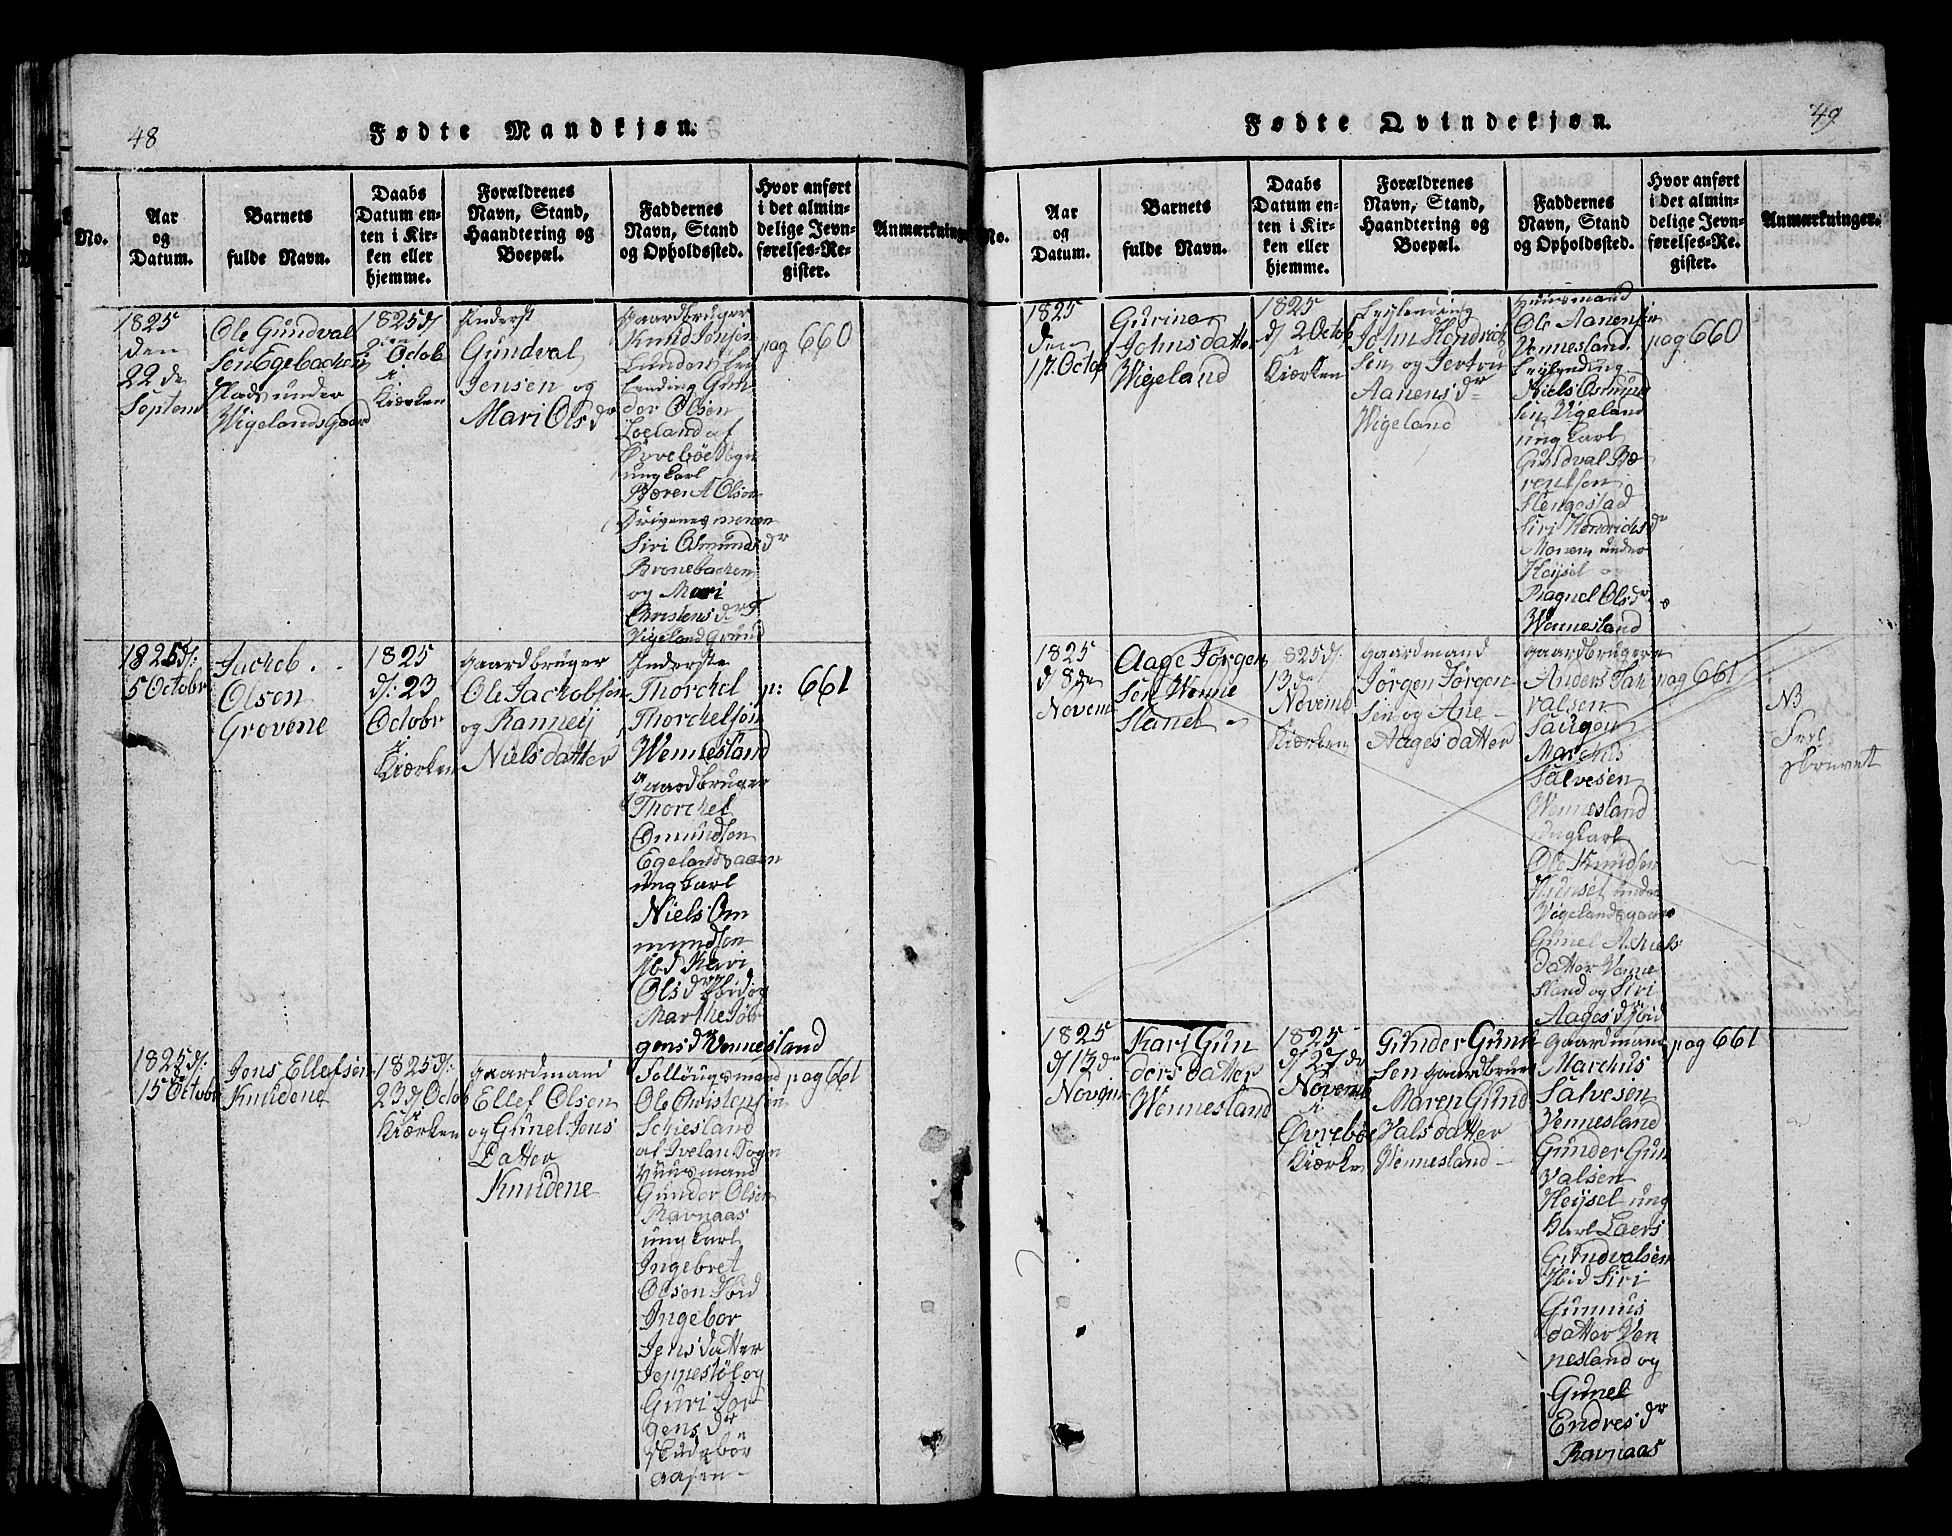 48
Fødte Mandkjøn.
No.
Aar
og
Datum.
Barnets
fulde Navn.
Daabs
Datum en-
ten i Kir-
ken eller
hjemme.
Forældrenes
Navn, Stand,
Haandtering og
Boepæl.
Faddernes
Navn, Stand
og Opholdssted.
Hvor anført
i det almin-
delige Jevn-
førelses-Re-
gister.
Anmærkninge
1825
den
22 de
Septem
Ole Gundval
Sen Egebachen
Plads under
Wigelands Gaard
1825 d
Octob
i
Kiærken
Inderst
Gundval
Jensen og
Mari Ols dr
Gaardbruger
Knud Jensen
Lunden Ley
lending Gun
der Olsen
Loeland af
Øvrebøe Sogn
ung karl
Bæren A Olsen
Drivenes moen
Siri Osmunds dr
Bronebachen
og Mari
Christens dr
Vigeland Grund
pag 660
1825 d:
5 Octobr
Jacheb
Olsen
Grovene
1825
d: 23
Octobr
i
Kiærken
gaardbruger
Ole Jachobsøn
og Ranneij
Nielsdatter
Inderste
Thorchel
Thorchelsøn
Wennesland
gaardbruger
Thorchel
Omundsen
Egelandsaaen
ung karl
Niels Om
mundsen
Ibd Kari
Olsdr Ibid og
Marthe Jør
gensdr Vennesland
p: 661
1825 d:
15 Octobr
Jens Ellefsen
Knudene
1825 d:
23 d Octob
i
Kiærken
gaardmand
Ellef Olsen
og Gunel Jens
Datter
Knudene
Ole Christensen
Schiesland
af Ivelan Sogn
Huusmand
Gunder Olsen
Ravnaas
ung karl
Ingebret
Olsen Ibid
Ingebor
Jensdatter
Jeppestøl og
Guri Jør
gens dr
aasen
pag 661
49
Fødte Qvindekjøn.
No.
Aar
og
Datum.
Barnets
fulde Navn.
Daabs
Datum en-
ten i Kir-
ken eller
hjemme.
Forældrenes
Navn, Stand,
Haandtering og
Boepæl.
Faddernes
Navn, Stand
og Opholdssted.
Hvor anført
i det almin-
delige Jevn-
førelses-Re-
gister.
Anmærkninger.
1825
den
17. Octob
Gurine
Johnsdatter
Wigeland
1825
d 2 Octob
i
Kiærken
Leylending
John Hendrich
Sen og Jertru
Aanens dr
Wigeland
Huusmand
Ole Aanensen
Vennesland.
Leylending
Niels Osmund
Sen Vigeland
ung karl
Gundval Bæ
rentsen
Stengestad
Siri Hendrichs dr
Monen under
Heijsel og
Ragnel Ols dr
Wennesland
pag 660
1825
d 8 de
Novem
Aage Jørgen
Sen Wenne
sland
825 d:
13 de
Novemb
i
Kiærken
gaardmand
Jørgen Jørgen
Sen og Ane
Aagesdatter
gaardbrugere
Anders Tar
valsen
Marchus
Salvesen
Wennesland
ung karl
Ole Knudsen
under
Vigelands gaard
Gunel Achiels
datter Venne
sland og Siri
Aagesd Ibid
pag 661
NB
Feil
skrevet
1825
d 13 de
Novem
Kari Gun
dersdatter
Wennesland
1825
d 27 de
Novemb
i
Øvrebøe
Kiærke
Gunder Gund
Sen gaardbruger
Maren Gund
Valsdatter
Vennesland
gaardmand
Marchus
Salvesen
Vennesland
Gunder Gun
Valsen
Heijsel ung
karl Laers
Gundvalsen
Ibid Siri
Gunnus
datter Ven
nesland og
Gunel
Endres dr
Ravnaas
pag 661